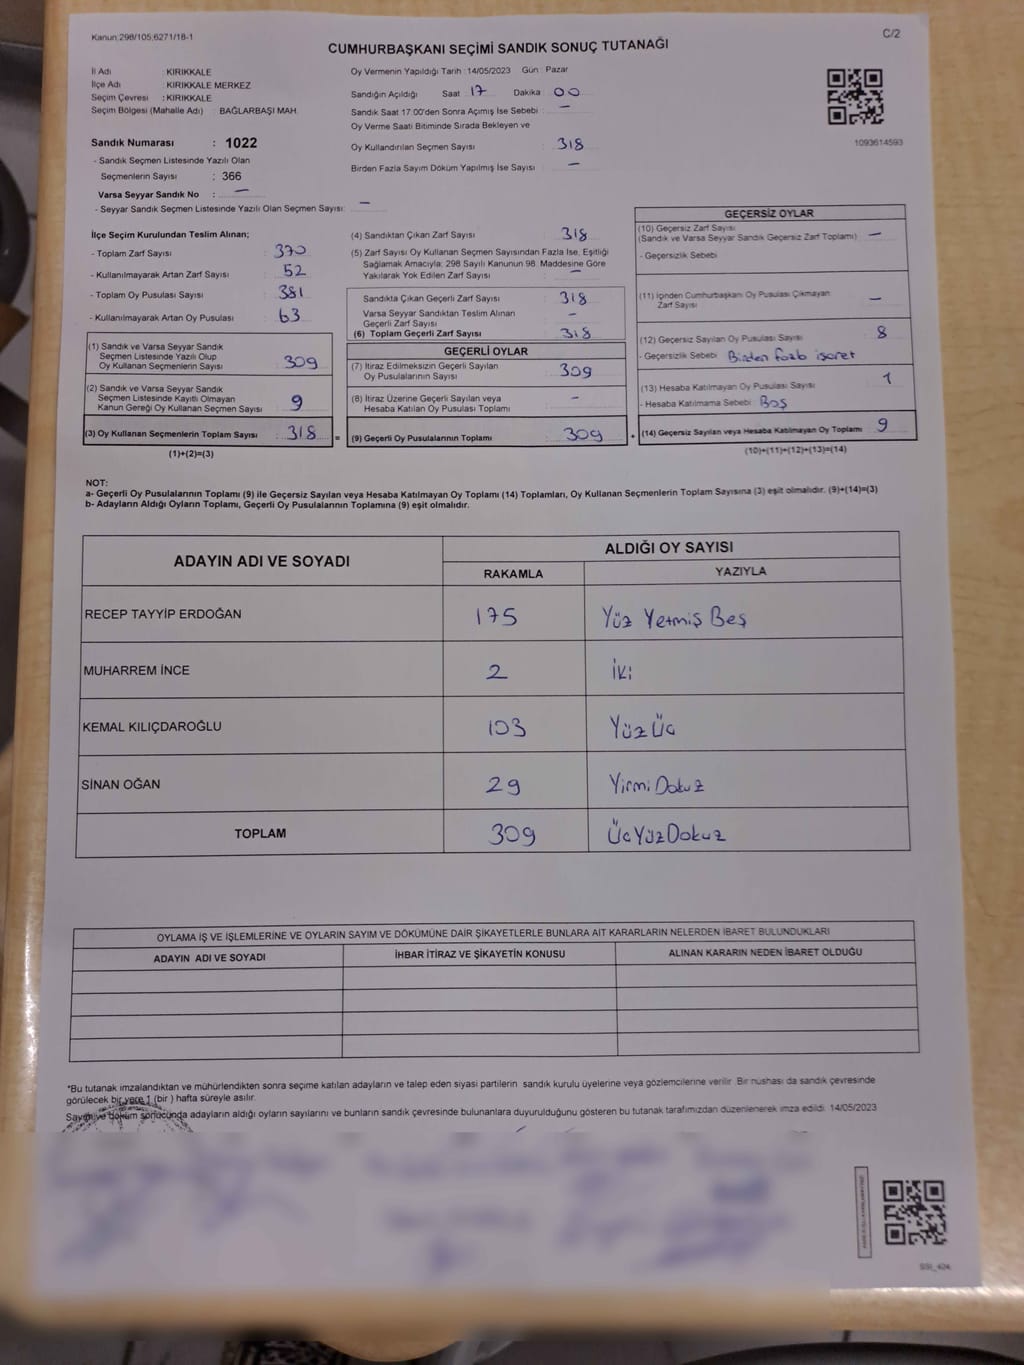 Kanun:298/105;6271/18-1
C/2
CUMHURBAŞKANI SEÇİMİ SANDIK SONUÇ TUTANAĞI
İl Adı : KIRIKKALE
İlçe Adı : KIRIKKALE MERKEZ
Seçim Çevresi : KIRIKKALE
Seçim Bölgesi (Mahalle Adı) : BAĞLARBAŞI MAH.
Sandık Numarası : 1022
- Sandık Seçmen Listesinde Yazılı Olan
Seçmenlerin Sayısı : 366
Varsa Seyyar Sandık No : –
- Seyyar Sandık Seçmen Listesinde Yazılı Olan Seçmen Sayısı: –
Oy Vermenin Yapıldığı Tarih : 14/05/2023 Gün : Pazar
Sandığın Açıldığı Saat 17 Dakika 00
Sandık Saat 17:00'den Sonra Açımış İse Sebebi : –
Oy Verme Saati Bitiminde Sırada Bekleyen ve
Oy Kullandırılan Seçmen Sayısı : 318
Birden Fazla Sayım Döküm Yapılmış İse Sayısı : –
1093614593
İlçe Seçim Kurulundan Teslim Alınan;
- Toplam Zarf Sayısı : 370
- Kullanılmayarak Artan Zarf Sayısı : 52
- Toplam Oy Pusulası Sayısı : 381
- Kullanılmayarak Artan Oy Pusulası : 63
(1) Sandık ve Varsa Seyyar Sandık
Seçmen Listesinde Yazılı Olup
Oy Kullanan Seçmen Sayısı : 309
(2) Sandık ve Varsa Seyyar Sandık
Seçmen Listesinde Kayıtlı Olmayan
Kanun Gereği Oy Kullanan Seçmen Sayısı : 9
(3) Oy Kullanan Seçmenlerin Toplam Sayısı : 318 =
(1)+(2)=(3)
(4) Sandıktan Çıkan Zarf Sayısı : 318
(5) Zarf Sayısı Oy Kullanan Seçmen Sayısından Fazla İse, Eşitliği
Sağlamak Amacıyla; 298 Sayılı Kanunun 98. Maddesine Göre
Yakılarak Yok Edilen Zarf Sayısı : –
Sandıkta Çıkan Geçerli Zarf Sayısı : 318
Varsa Seyyar Sandıktan Teslim Alınan
Geçerli Zarf Sayısı : –
(6) Toplam Geçerli Zarf Sayısı : 318
GEÇERLİ OYLAR
(7) İtiraz Edilmeksizin Geçerli Sayılan
Oy Pusulalarının Sayısı : 309
(8) İtiraz Üzerine Geçerli Sayılan veya
Hesaba Katılan Oy Pusulası Toplamı : –
(9) Geçerli Oy Pusulalarının Toplamı : 309 +
GEÇERSİZ OYLAR
(10) Geçersiz Zarf Sayısı
(Sandık ve Varsa Seyyar Sandık Geçersiz Zarf Toplamı) : –
- Geçersizlik Sebebi
(11) İçinden Cumhurbaşkanı Oy Pusulası Çıkmayan
Zarf Sayısı : –
(12) Geçersiz Sayılan Oy Pusulası Sayısı : 8
- Geçersizlik Sebebi : Birden fazla işaret
(13) Hesaba Katılmayan Oy Pusulası Sayısı : 1
- Hesaba Katılmama Sebebi : Boş
(14) Geçersiz Sayılan veya Hesaba Katılmayan Oy Toplamı : 9
(10)+(11)+(12)+(13)=(14)
NOT:
a- Geçerli Oy Pusulalarının Toplamı (9) ile Geçersiz Sayılan veya Hesaba Katılmayan Oy Toplamı (14) Toplamları, Oy Kullanan Seçmenlerin Toplam Sayısına (3) eşit olmalıdır. (9)+(14)=(3)
b- Adayların Aldığı Oyların Toplamı, Geçerli Oy Pusulalarının Toplamına (9) eşit olmalıdır.
ADAYIN ADI VE SOYADI
ALDIĞI OY SAYISI
RAKAMLA YAZIYLA
RECEP TAYYİP ERDOĞAN 175 Yüz Yetmiş Beş
MUHARREM İNCE 2 İki
KEMAL KILIÇDAROĞLU 103 Yüz Üç
SİNAN OĞAN 29 Yirmi Dokuz
TOPLAM 309 Üç Yüz Dokuz
OYLAMA İŞ VE İŞLEMLERİNE VE OYLARIN SAYIM VE DÖKÜMÜNE DAİR ŞİKAYETLERLE BUNLARA AİT KARARLARIN NELERDEN İBARET BULUNDUKLARI
ADAYIN ADI VE SOYADI İHBAR İTİRAZ VE ŞİKAYETİN KONUSU ALINAN KARARIN NEDEN İBARET OLDUĞU
*Bu tutanak imzalandıktan ve mühürlendikten sonra seçime katılan adayların ve talep eden siyasi partilerin sandık kurulu üyelerine veya gözlemcilerine verilir. Bir nüshası da sandık çevresinde
görülecek bir yere 1 (bir ) hafta süreyle asılır.
Sayım ve döküm sonucunda adayların aldığı oyların sayılarını ve bunların sandık çevresinde bulunanlara duyurulduğunu gösteren bu tutanak tarafımızdan düzenlenerek imza edildi. 14/05/2023